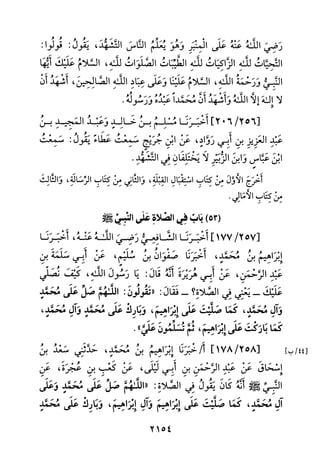 رَضِيَ اللَّهُ عَنْهُ عَلَى الْمِنْبَرِ وَهُوَ يُعَلِّمُ النَّاسَ التَّشَهُّدَ، يَقُولُ: قُولُوا:
التَّحِيَّاتُ لِلَّهِ الزَّاكِيَاتُ لِلَّهِ الطَّيِّبَاتُ الصَّلَوَاتُ لِلَّهِ، السَّلَامُ عَلَيْكَ أَيُّهَا
النَّبِيُّ وَرَحْمَةُ اللَّهِ، السَّلَامُ عَلَيْنَا وَعَلَى عِبَادِ اللَّهِ الصَّالِحِينَ، أَشْهَدُ أَنْ
لَا إِلَهَ إِلَّا اللَّهُ وَأَشْهَدُ أَنَّ مُحَمَّداً عَبْدُهُ وَرَسُولُهُ.
[٢٠٦/٢٥٦] أَخْبَرَنَا مُسْلِمُ بْنُ خَالِدٍ وَعَبْدُ الْمَجِيدِ بنُ
عَبْدِ الْعَزِيزِ بنِ أَبِي رَوَّادٍ، عَنْ ابْنِ جُرَيْجٍ سَمِعْتُ عَطَاءً يَقُولُ: سَمِعْتُ
ابْنَ عَبَّاسٍ وَابنَ الزُّبَيْرِ لَا يَخْتَلِفَانِ فِي التَّشَهُّدِ.
أَخْرَجَ الأَوَّلَ مِنْ كِتَابِ اسْتِقْبَالِ القِبْلَةِ، وَالثَّانِيَ مِنْ كِتَابِ الرِّسَالَةِ، وَالثَّالِثَ
مِنْ كِتَابِ الأَمَالِي.
(٥٣) بَابٌ فِي الصَّلَاةِ عَلَى النَّبِيِّ ﷺ
[١٧٧/٢٥٧] أَخْبَرَنَا الشَّافِعِيُّ رَضِيَ اللَّهُ عَنْهُ، أَخْبَرَنَا
إِبْرَاهِيمُ بنُ مُحَمَّدٍ، أَخْبَرَنَا صَفْوَانُ بنُ سُلَيْمٍ، عَنْ أَبِي سَلَمَةَ بنِ
عَبْدِ الرَّحْمَنِ، عَنْ أَبِي هُرَيْرَةَ أَنَّهُ قَالَ: يَا رَسُولَ اللَّهِ، كَيْفَ نُصَلِّي
عَلَيْكَ ـ يَعْنِي فِي الصَّلَاةِ؟ ـ فَقَالَ: «تَقُولُونَ: اللَّهُمَّ صَلِّ عَلَى مُحَمَّدٍ
وَآلِ مُحَمَّدٍ، كَمَا صَلَّيْتَ عَلَى إِبْرَاهِيمَ، وَبَارِكْ عَلَى مُحَمَّدٍ وَآلِ مُحَمَّدٍ،
كَمَا بَارَكْتَ عَلَى إِبْرَاهِيمَ، ثُمَّ تُسَلِّمُونَ عَلَيَّ».
[١٧٨/٢٥٨] أ/خْبَرَنَا إِبْرَاهِيمُ بنُ مُحَمَّدٍ، حَدَّثَنِي سَعْدُ بنُ [٤٤/ب]
إِسْحَاقَ عَنْ عَبْدِ الرَّحْمَنِ بنِ أَبِي لَيْلَى، عَنْ كَعْبِ بنِ عُجْرَةَ، عَنِ
النَّبِيِّ ﷺ أَنَّهُ كَانَ يَقُولُ فِي الصَّلَاةِ: «اللَّهُمَّ صَلِّ عَلَى مُحَمَّدٍ وَعَلَى
آلِ مُحَمَّدٍ، كَمَا صَلَّيْتَ عَلَى إِبْرَاهِيمَ وَآلِ إِبْرَاهِيمَ، وَبَارِكْ عَلَى مُحَمَّدٍ
٢١٥٤